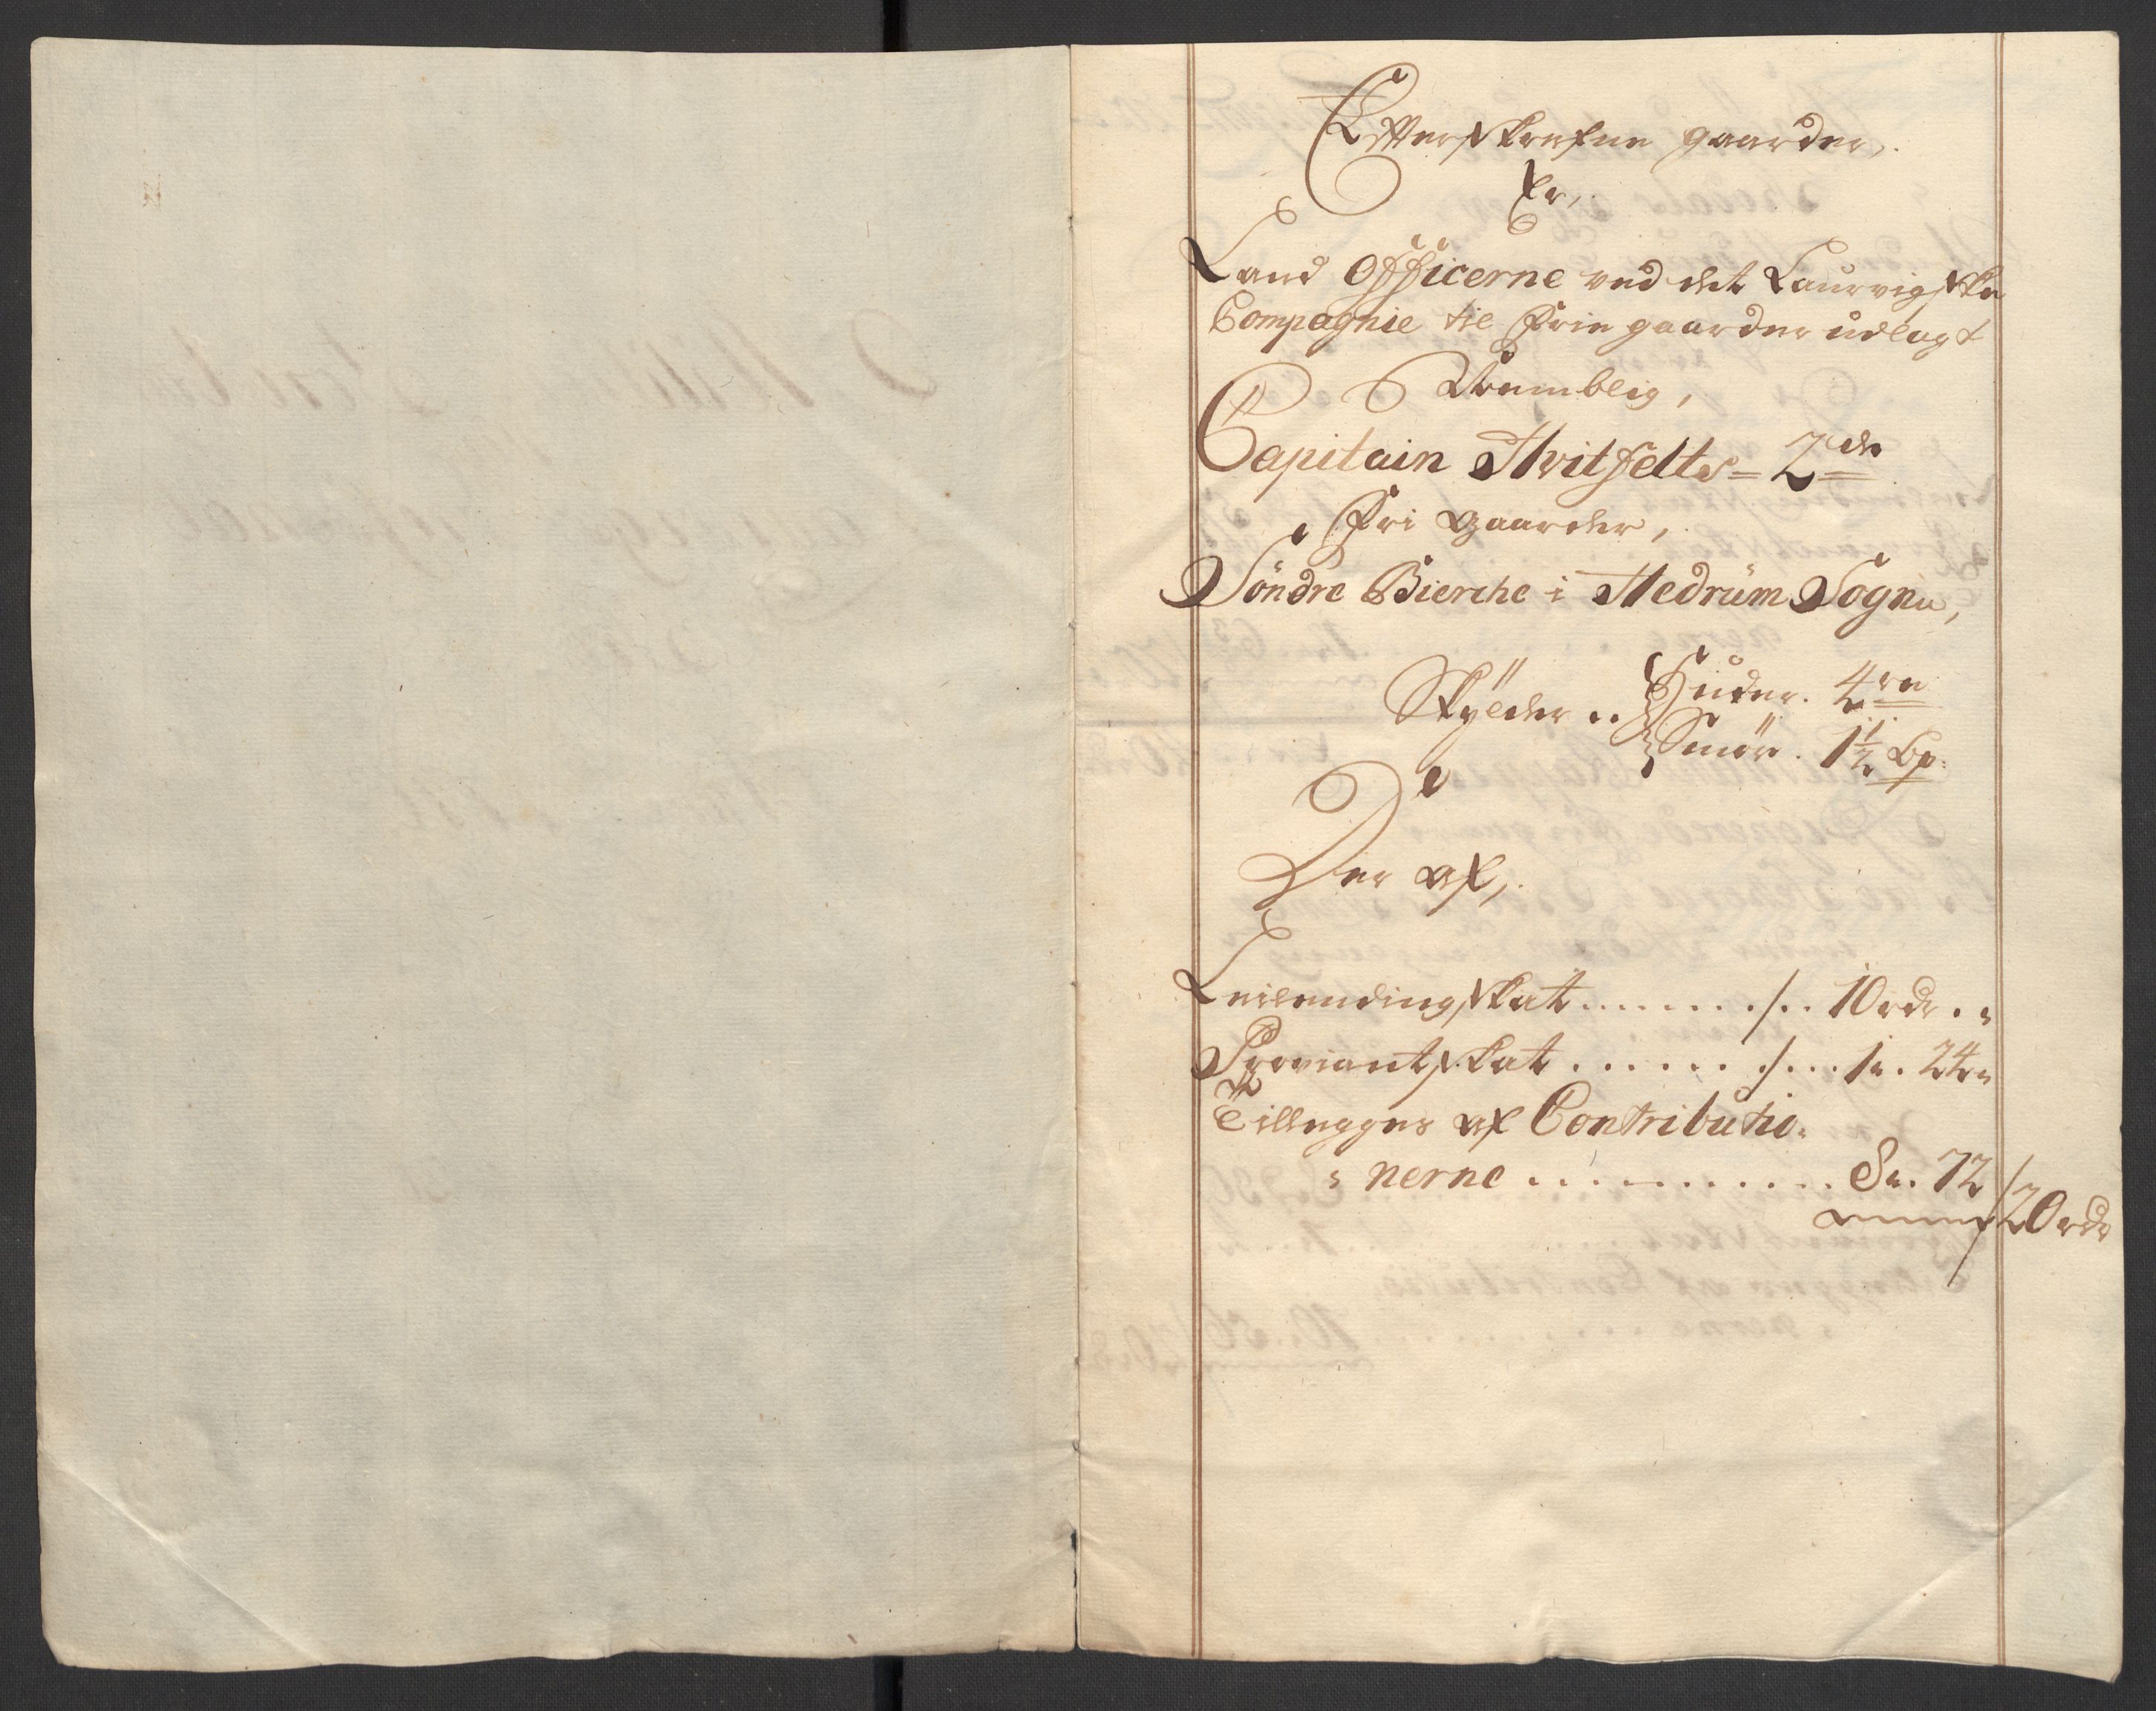 Efterskrefne gaarder,
Er,
Land Officerne ved det Laurvigske
Compagnie til Frie gaarder udlagt
Nemblig,
Capitain Hvitfelts = 2de
Fri Gaarder,
Söndre Bierche i Hedrüm Sogn,
Skylder .. Huder. 4re
Smör. 1½ Bp:
Der af,
Leilendingskat ....... /.. 10 rdr ..
Proviantskat ....... /... 1 . 24
Tillegges af Contributio-
nerne ............ 8 . 72
20 rdr